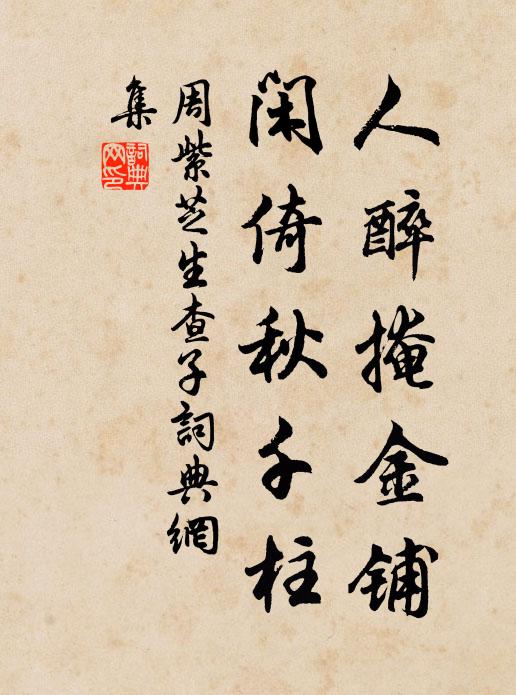 人醉掩金铺
闲倚秋千柱
周紫芝生查子詞典網
集
詞典網印